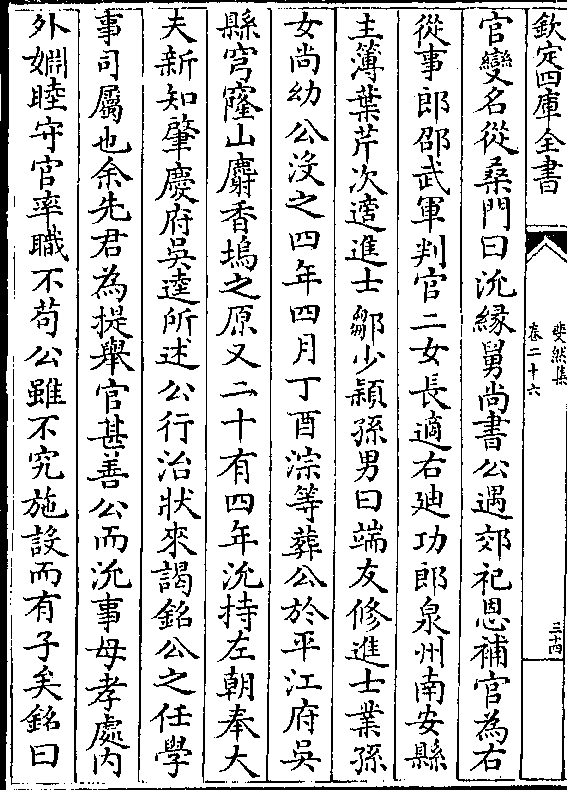 欽定四庫全書
斐然集
卷二十六
三十四
官變名從桑門曰沇縁舅尚書公遇郊祀恩補官為右
從事郎邵武軍判官二女長適右廸功郎泉州南安縣
主簿葉芹次適進士鄒少穎孫男曰端友修進士業孫
女尚幼公沒之四年四月丁酉淙等葬公於平江府吳
縣穹窿山麝香塢之原又二十有四年沇持左朝奉大
夫新知肇慶府吳逵所述公行治狀來謁銘公之任學
事司屬也余先君為提舉官甚善公而沇事母孝處內
外婣睦守官率職不苟公雖不究施設而有子矣銘曰